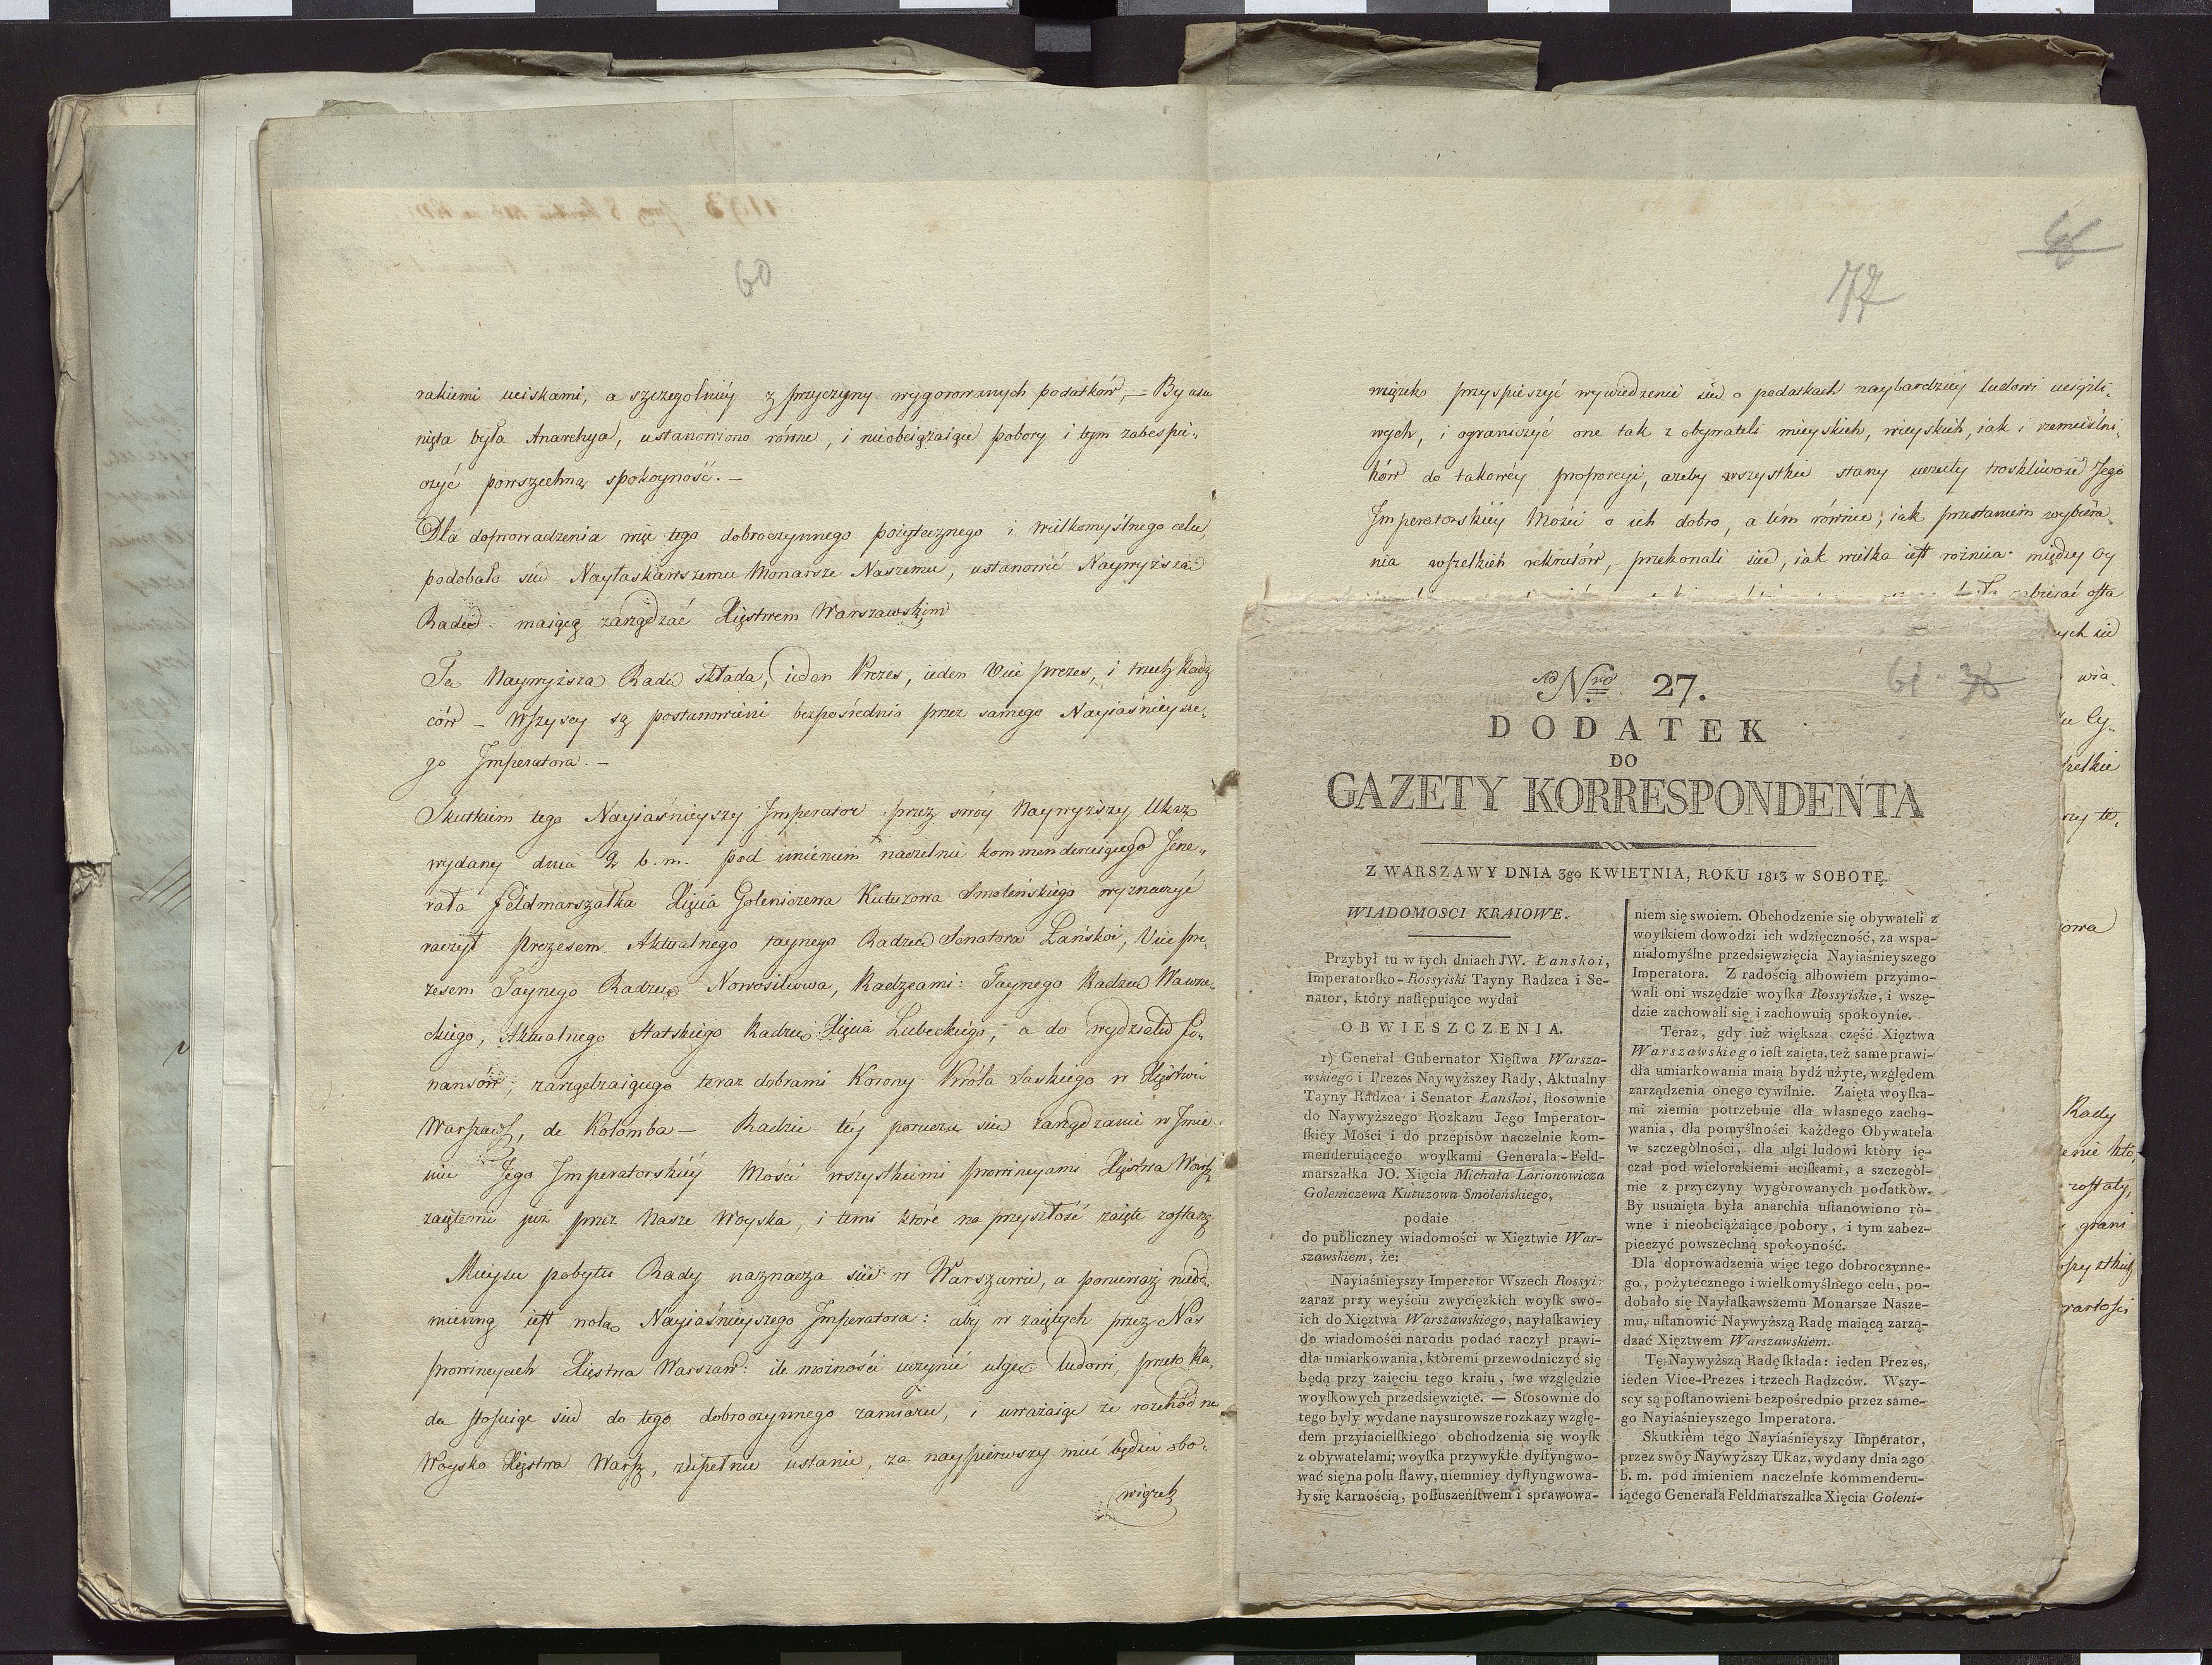 60
rakiemi uciskami, a szczegolniéy z przyczyny wygorowanych podatków, — By usu
nięta była Anarchya, ustanowiono równe, i nieobciążaiące pobory i tym zabespie„
czyć powszechną spokoyność. —
Dla doprowadzenia więc tego dobroczynnego pożytecznego i wielkomyślnego celu,
podobało się Nayłaskawszemu Monarsze Naszemu, ustanowić Naywyższą
Radę maiącą zarządzać Xięstwem Warszawskim
Tę Naywyższa Radę składa, ieden Prezes, ieden Vice prezes, i trzech Radz
ców — Wszyscy są postanowieni bezpośrednio przez samego Nayiaśnieysze„
go Imperatora. —
Skutkiem tego Nayiaśnieyszy Imperator przez swóy Naywyższy Ukaz
wydany dnia 2 b. m. pod imieniem naczelnie kommenderuiącego Jene„
rała feldmarszałka Xięcia Goleniczewa Kutuzowa Smoleńskiego wyznaczyć
raczył Prezesem Aktualnego taynego Radzcę Senatora Łańskoi, Vice pre„
zesem Taynego Radzcę Nowosilcowa, Radzcami: Taynego Radzcę Wawrze„
ckiego, Aktualnego Statskiego Radzcę Xięcia Lubeckiego, a do wydziału fi„
nansów, zarządzaiącego teraz dobrami Korony Króla Saskiego w Xięstwie
Warszaws, de Kolomba — Radzie téy porucza się zarządzanie w Imie
niu Jego Imperatorskiéy Mości wszystkiemi prowincyami Xięstwa Warsz
zaiętemi już przez Nasze Woyska, i temi które na przyszłość zaięte zostaną
Mieysce pobytu Rady naznacza się w Warszawie, a ponieważ nieod„
mienną iest wolą Nayiaśnieyszego Imperatora: aby w zaiętych przez Nas
prowincyach Xięstwa Warszaw: ile możności uczynić ulgę ludowi, przeto Ra„
da stosuiąc się do tego dobroczynnego zamiaru, i uważaiąc że rozchód na
Woysko Xięstwa Warsz, zupełnie ustanie, za naypierwszy mieć będzie obo„
wiązek
77
wiązek przyspieszyć wywiedzenie się o podatkach naybardziéy ludowi uciążli„
wych, i ograniczyć one tak z obywateli mieyskich, wieyskich, iak i rzemieślni„
ków do takowéy proporcyi, ażeby wszystkie stany uczuły troskliwość Jego
Imperatorskiéy Mości o ich dobro, a tém równie, iak przestaniem wybiera„
nia wszelkich rekrutów, przekonali się, iak wielka iest różnica między
Nro 27.
61 38
DODATEK
DO
GAZETY KORRESPONDENTA
Z WARSZAWY DNIA 3go KWIETNIA, ROKU 1813 w SOBOTĘ.
WIADOMOSCI KRAIOWE.
Przybył tu w tych dniach JW. Łanskoi,
Imperatorſko-Rossyiski Tayny Radzca i Se-
nator, który naſtępuiące wydał
OBWIESZCZENIA.
1) Generał Gubernator Xięſtwa Warsza-
wskiego i Prezes Naywyższey Rady, Aktualny
Tayny Radzca i Senator Łanskoi, ſtosownie
do Naywyższego Rozkazu Jego Imperator-
ſkiey Mości i do przepisów naczelnie kom-
menderuiącego woyſkami Generała-Feld-
marszałka JO. Xięcia Michała Larionowicza
Goleniczewa Kutuzowa Smoleńskiego,
podaie
do publiczney wiadomości w Xięztwie War-
szawskiem, że:
Nayiaśnieyszy Imperator Wszech Rossyi
zaraz przy weyściu zwycięzkich woyſk swo-
ich do Xięztwa Warszawskiego, nayłaſkawiey
do wiadomości narodu podać raczył prawi-
dła umiarkowania, któremi przewodniczyć się
będą przy zaięciu tego kraiu, we względzie
woyſkowych przedsięwzięte. — Stosownie do
tego były wydane naysurowsze rozkazy wzglę-
dem przyiacielſkiego obchodzenia się woyſk
z obywatelami; woyſka przywykłe dyſtyngwo-
wać się na polu ſławy, niemniey dyſtyngwowa-
ły się karnością, poſłuszeńſtwem i sprawowa-
niem się swoiem. Obchodzenie się obywateli z
woyſkiem dowodzi ich wdzięczność, za wspa-
niałomyślne przedsięwzięcia Nayiaśnieyszego
Imperatora. Z radością albowiem przyimo-
wali oni wszędzie woyſka Rossyiskie, i wszę-
dzie zachowali się i zachowuią spokoynie.
Teraz, gdy iuż większa część Xięztwa
Warszawskiego ieſt zaięta, też same prawi-
dła umiarkowania maią bydź użyte, względem
zarządzenia onego cywilnie. Zaięta woyſka-
mi ziemia potrzebuie dla własnego zacho-
wania, dla pomyślności każdego Obywatela
w szczególności, dla ulgi ludowi który ię-
czał pod wielorakiemi uciſkami, a szczegól-
nie z przyczyny wygórowanych podatków.
By usunięta była anarchia uſtanowiono ró-
wne i nieobciążaiące pobory, i tym zabez-
pieczyć powszechną spokoyność.
Dla doprowadzenia więc tego dobroczynne-
go, pożytecznego i wielkomyślnego celu, po-
dobało się Nayłaſkawszemu Monarsze Nasze-
mu, uſtanowić Naywyższą Radę maiącą zarzą-
dzać Xięztwem Warszawskiem.
Tę Naywyższą Radę ſkłada: ieden Prezes,
ieden Vice-Prezes i trzech Radzców. Wszy-
scy są poſtanowieni bezpośrednio przez same-
go Nayiaśnieyszego Imperatora.
Skutkiem tego Nayiaśnieyszy Imperator,
przez swóy Naywyższy Ukaz, wydany dnia 2go
b. m. pod imieniem naczelnie kommenderu-
iącego Generała Feldmarszałka Xięcia Goleni-